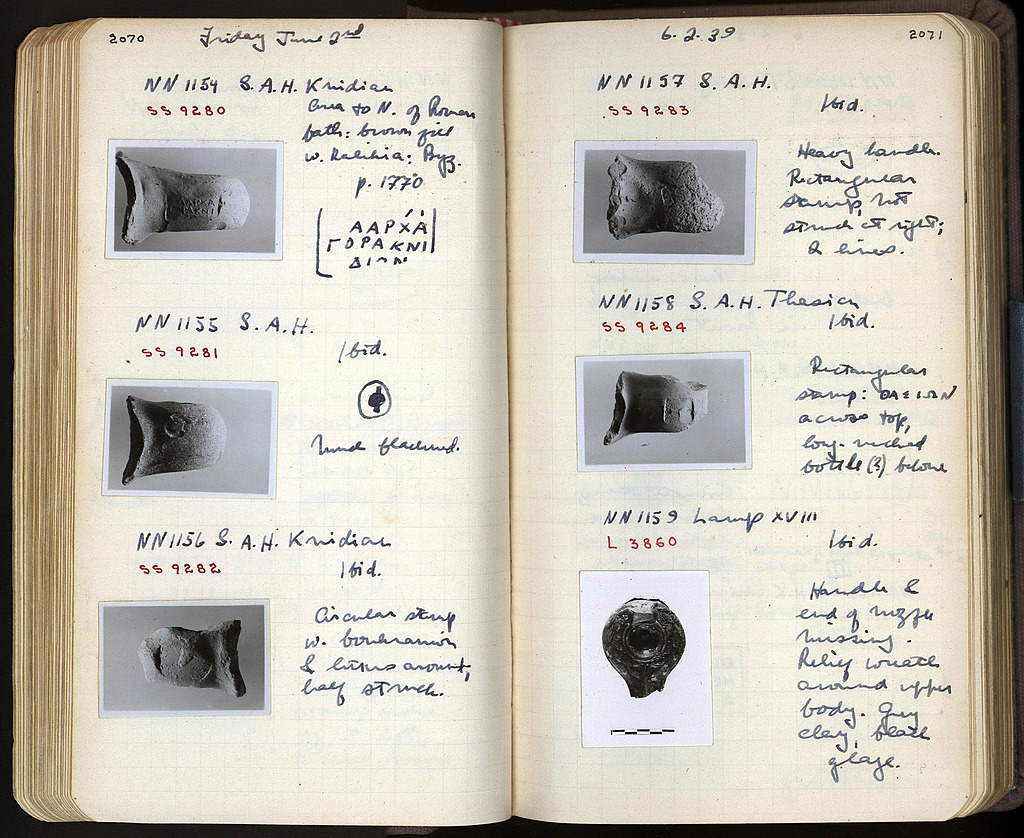 2070 Friday June 2nd
NN 1154 S.A.H. Knidian
SS 9280
Area to N. of Roman
bath: brown fill
w. Byz.
p. 1770
ΑΑΡΧΑ
ΓΟΡΑΚΝΙ
ΔΙΩΝ
NN 1155 S.A.H.
SS 9281
Ibid.
Much blackened.
NN 1156 S.A.H. Knidian
SS 9282
Ibid.
Circular stamp
w. boukranion
& letters around,
half struck.
6.2.39 2071
NN 1157 S.A.H.
SS 9283
Ibid.
Heavy handle.
Rectangular
stamp, not
struck at right;
2 lines.
NN 1158 S.A.H. Thasian
SS 9284
Ibid.
Rectangular
stamp: ΘΑΣΙΩΝ
across top,
long-necked
bottle (?) below
NN 1159 Lamp XVIII
L 3860
Ibid.
Handle &
end of nozzle
missing.
Relief wreath
around upper
body. Grey
clay, black
glaze.